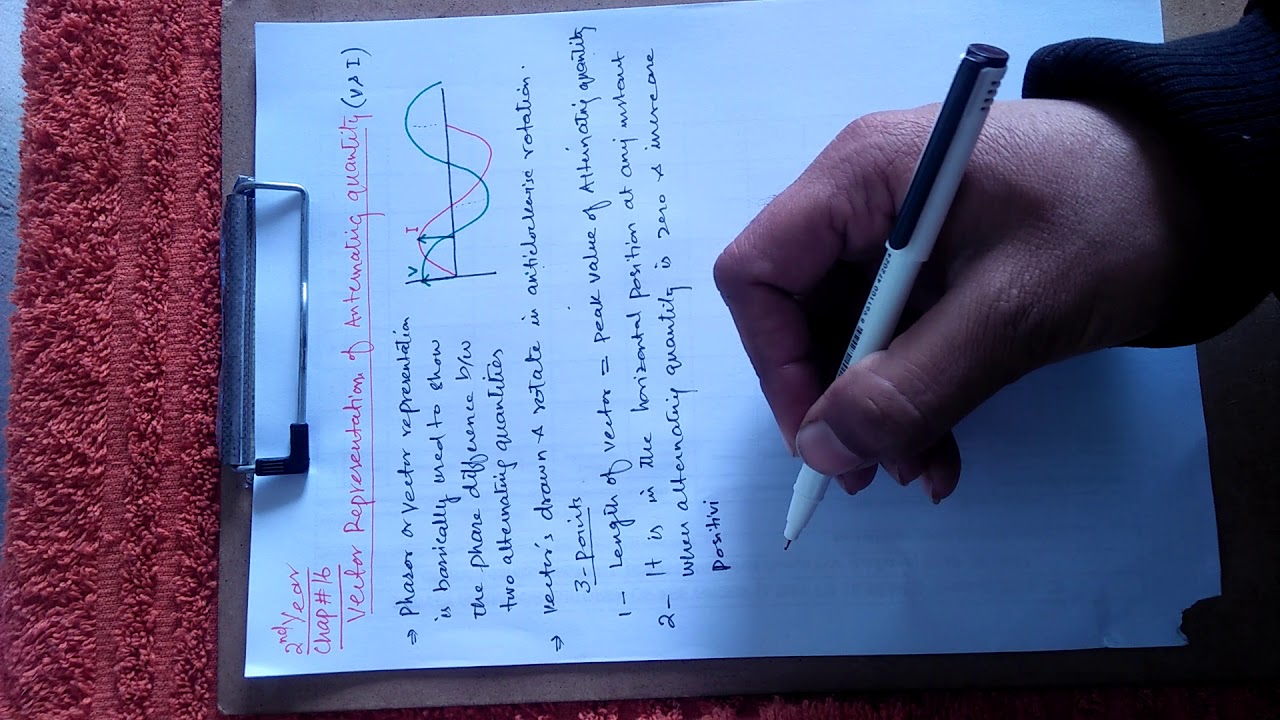 2nd Year
Chap # 16
Vector Representation of Anternating quantity (V & I)
⇒ Phasor or Vector representation
is basically used to show
the phase difference b/w
two alternating quantities
V
I
⇒ Vector's drawn & rotate in anticlockwise rotation.
3-Points
1- Length of vector = peak value of Alternating quantity
2- It is in the horizontal position at any instant
when alternating quantity is zero & increase
positivi